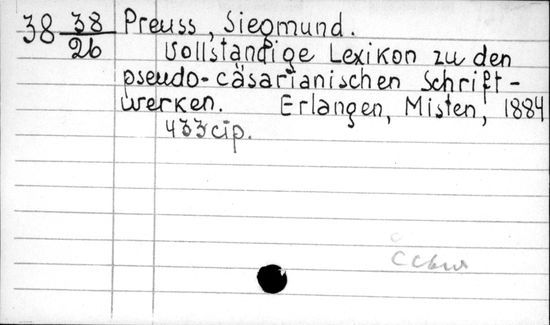 38 38/26 Preuss, Siegmund.
Vollständige Lexikon zu den
pseudo-cäsarianischen Schrift-
werken. Erlangen, Misten, 1884
433 cip.